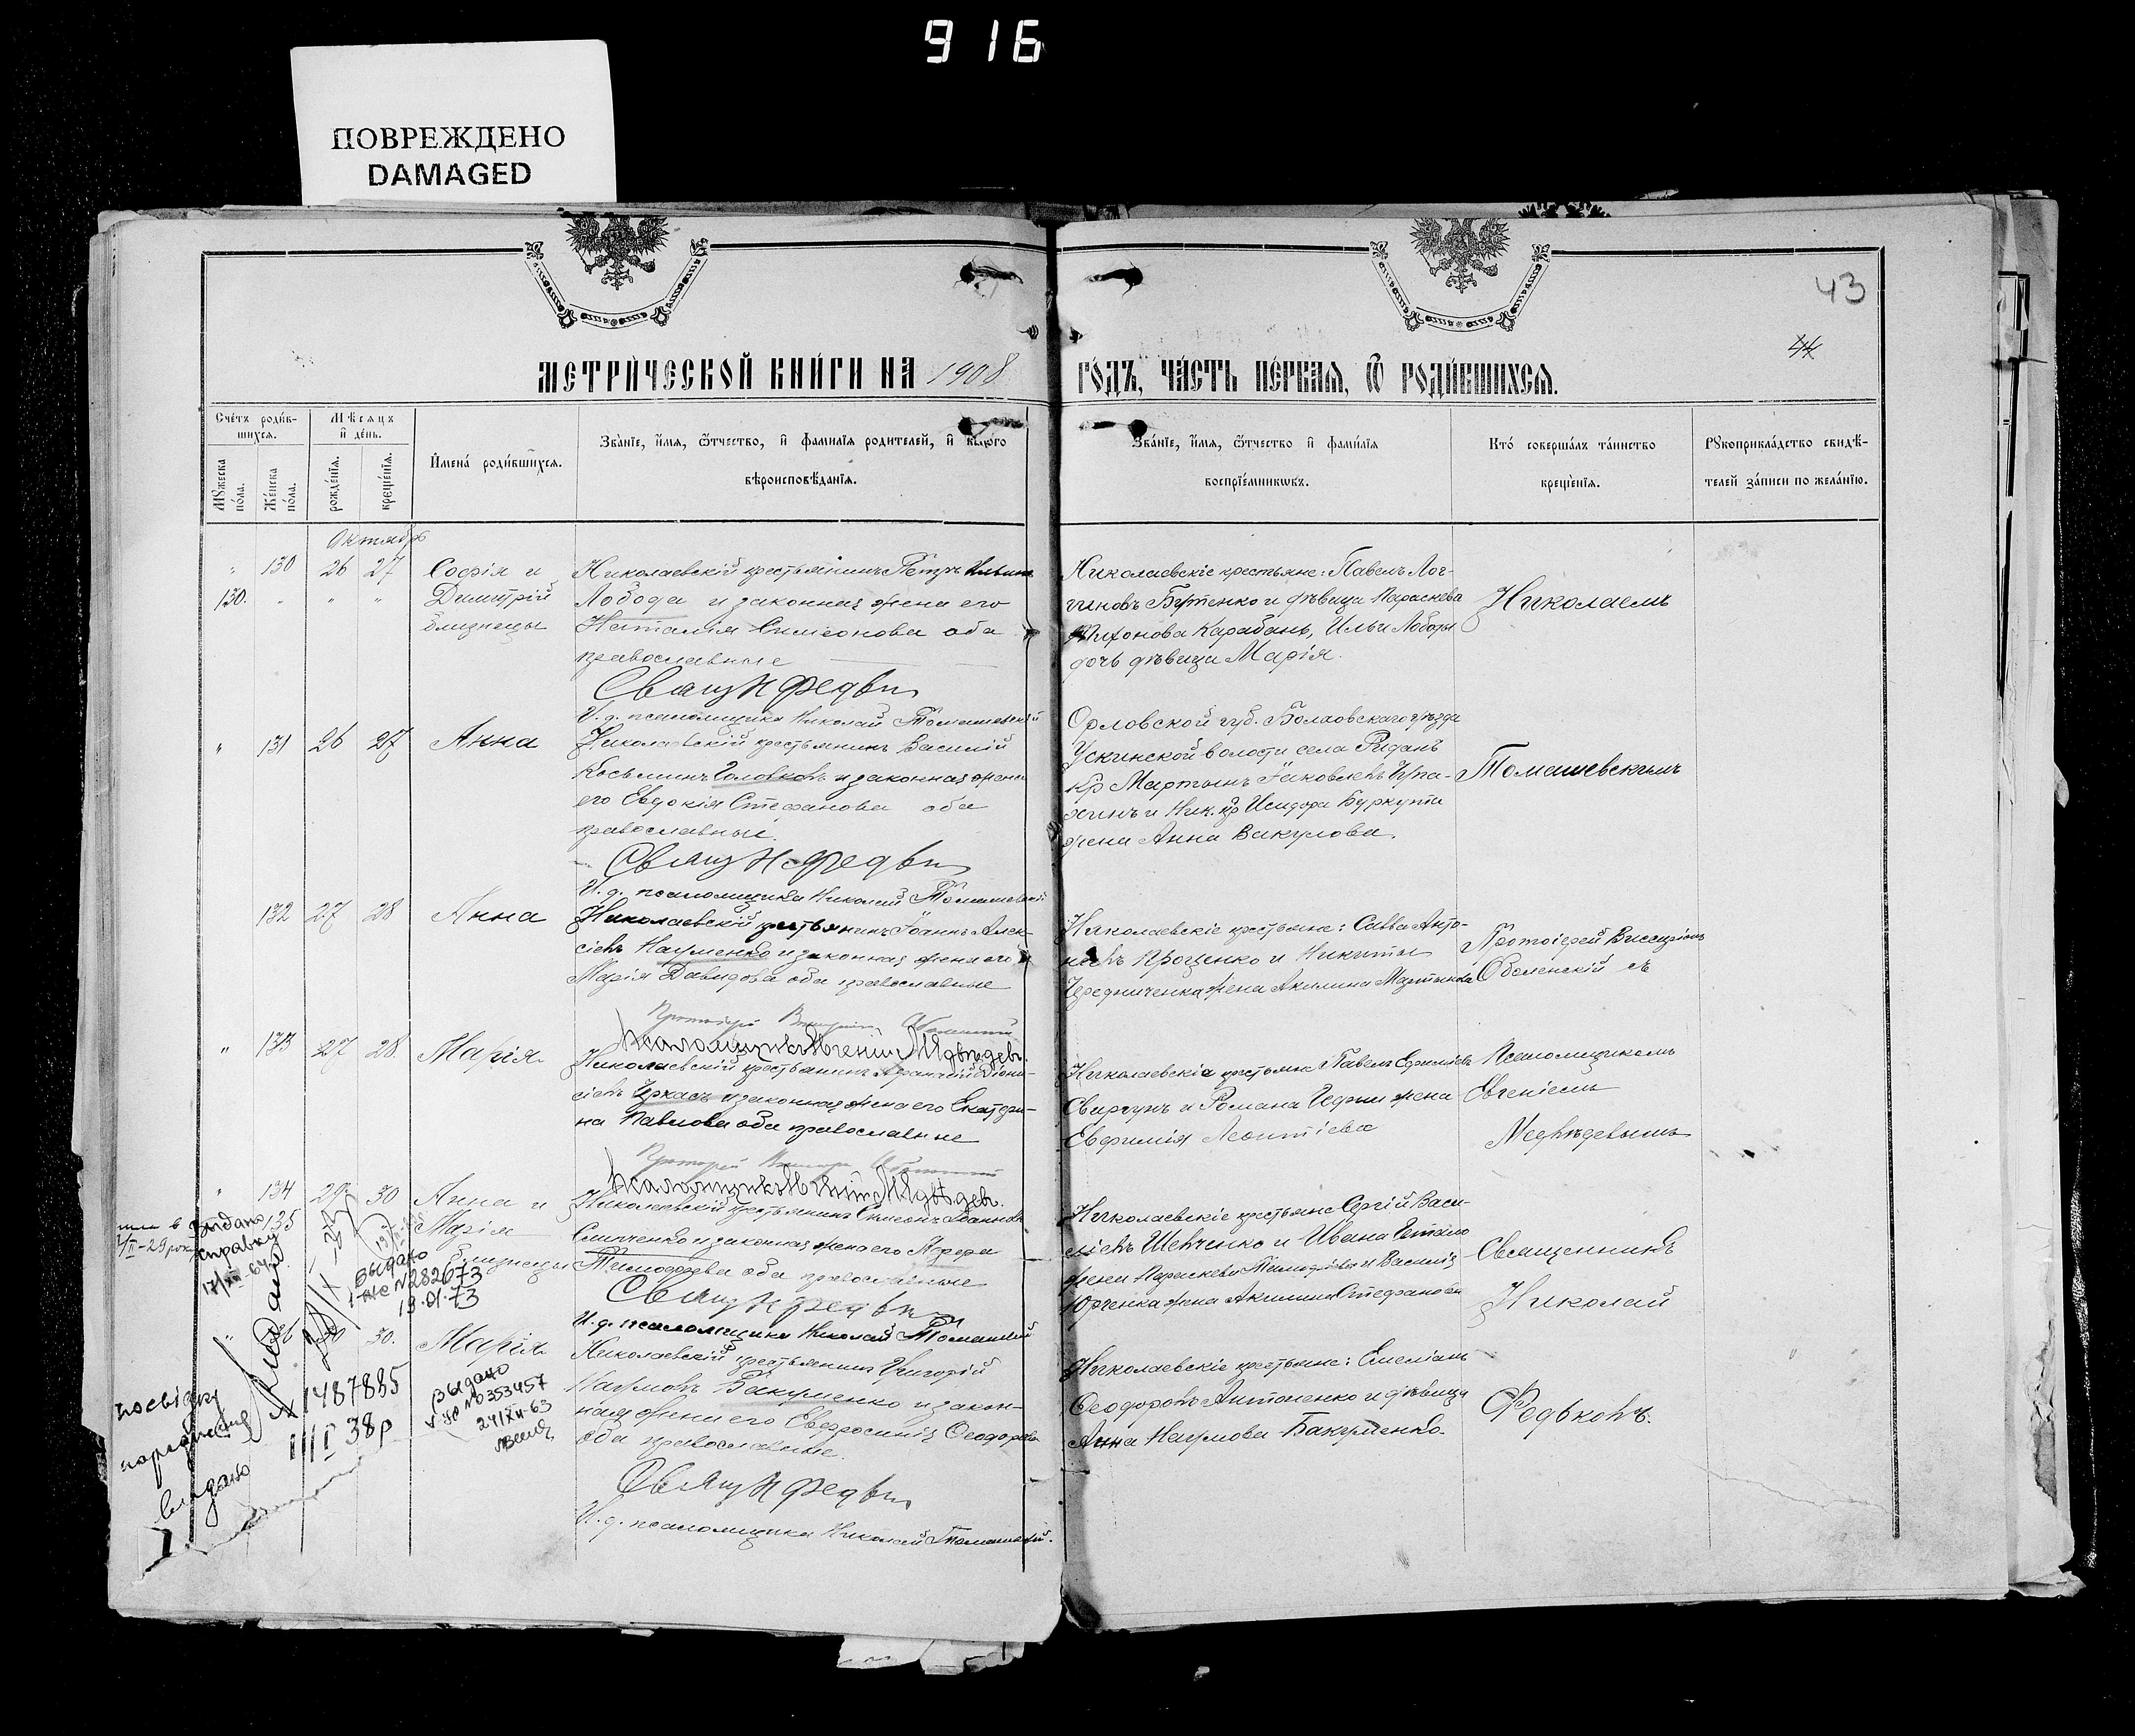 916
ПОВРЕЖДЕНО
DAMAGED
43
44
МЕТРИ́ЧЕСКОЙ КНИ́ГИ НА 1908 ГО́ДЪ, ЧА́СТЬ ПЕ́РВАЯ, Ѿ РОДИ́ВШИХСЯ.
Сче́тъ роди́в-
шихся.
Мѣсяцъ
и де́нь.
Мꙋжеска
по́ла.
Же́нска
по́ла.
рожде́нїя.
креще́нїя.
Имена́ роди́вшихся.
Зва́нїе, и́мя, ѻ́тчество, и фами́лїя родителей, и како́го
вѣроисповѣ́данїя.
Зва́нїе, и́мя, ѻ́тчество и фами́лїя
воспрїе́мникѡвъ.
Кто́ соверша́лъ та́инство
креще́нїя.
Рꙋкоприкла́дство свидѣ́-
телей за́писи по жела́нїю.
Октябрь
" 130 26 27 Софія и
130. " " " Димитрій
близнецы
Николаевскій крестьянинъ Петръ Ильинъ
Лобода и законная жена его
Наталія Симеонова оба
православные
Свящ Н Федьк
И. д. псаломщика Николай Томашевскій
Николаевскіе крестьяне: Павелъ Лог-
гиновъ Бутенко и дѣвица Параскева
Тихонова Карабань, Ильи Лободы
дочь дѣвица Марія.
Николаемъ
" 131 26 27 Анна
Николаевскій крестьянинъ Василій
Косьминъ Головко и законная жена
его Евдокія Стефанова оба
православные.
Свящ Н Федьк
И. д. псаломщика Николай Томашевскій
Орловской губ. Болховскаго уѣзда
волости села
кр Мартынъ Іаковлевъ
и Ник. кр Исидора Буркута
жена Анна Вакулова.
Томашевскимъ
132 27 28 Анна
Николаевскій крестьянинъ Іоаннъ Алек-
сіевъ Науменко и законная жена его
Марія Давидова оба православные
Протоіерей Виссаріонъ Оболенскій
Псаломщикъ Евгеній Медвѣдевъ.
Николаевскіе крестьяне: Савва Анто-
ніевъ Проценко и Никиты
Чередниченка жена Акилина Мартынова
Протоіерей Виссаріонъ
Оболенскій съ
" 133 27 28. Марія
Николаевскій крестьянинъ Діони-
сіевъ Черкасъ и законная жена его Екатери-
на Павлова оба православные
Протоіерей Виссаріонъ Оболенскій
Псаломщикъ Евгеній Медвѣдевъ.
Николаевскіе крестьяне Павелъ Ефиміевъ
Свиргунъ и Романа жена
Евфимія Леонтіева
Псаломщикомъ
Евгеніемъ
Медвѣдевымъ
" 134 29 30 Анна и
135
Марія
близнецы
Николаевскій крестьянинъ Симеонъ Іоанновъ
и законная жена его
Тимофеева оба православные
Свящ Н Федьк
И. д. псаломщика Николай Томашевскій
Николаевскіе крестьяне Сергій Васи-
ліевъ Шевченко и Ивана
жена Параскева Тимофеева и Василія
Юрченка жена Акилина Стефанова
Священникъ
Николай
" 136 30 30. Марія
Николаевскій крестьянинъ Григорій
Наумовъ Бакуменко и закон-
ная жена его Евфросинія Феодорова
оба православные.
Свящ Н Федьк
И. д. псаломщика Николай Томашевскій.
Николаевскіе крестьяне: Емеліанъ
Феодоровъ Антоненко и дѣвица
Анна Наумова Бакуменко.
Федьковъ.
Выдано
справку
17/XII-64
Выдано
I-ЖС №282673
19.01.73
посвідку
народження
видано
1487885
III 38р
Выдано
№353457
24/XII-63